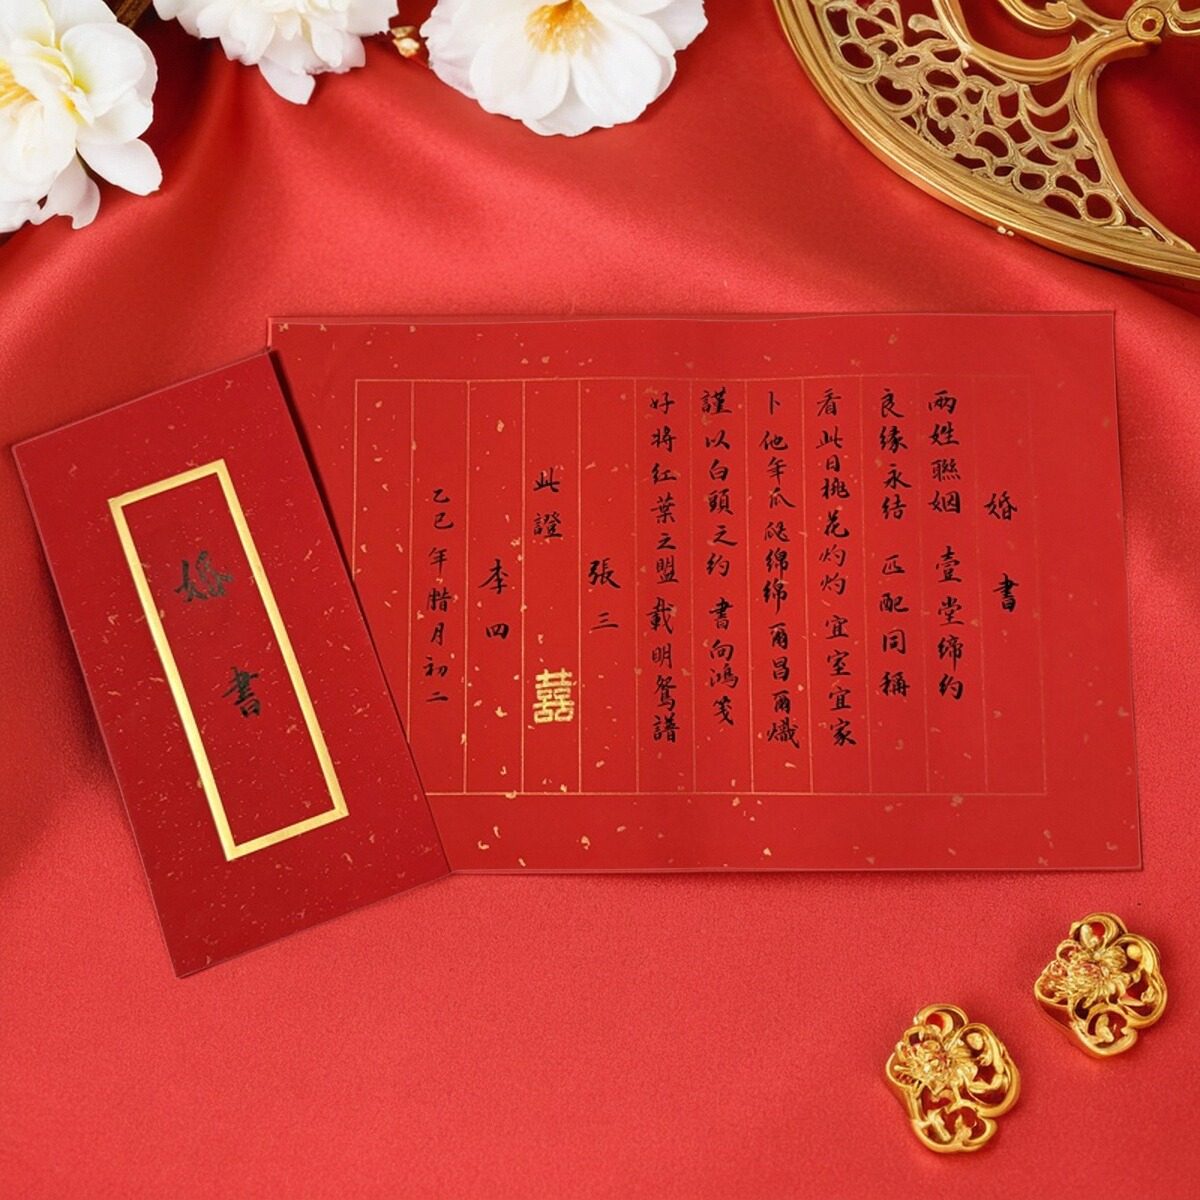 婚書
婚書
兩姓聯姻 壹堂締約
良緣永结 匹配同稱
看此日桃花灼灼 宜室宜家
卜他年瓜瓞綿綿 爾昌爾熾
謹以白頭之约 書向鴻笺
好将红葉之盟 載明鸳譜
張三
此證
囍
李四
乙巳年腊月初二